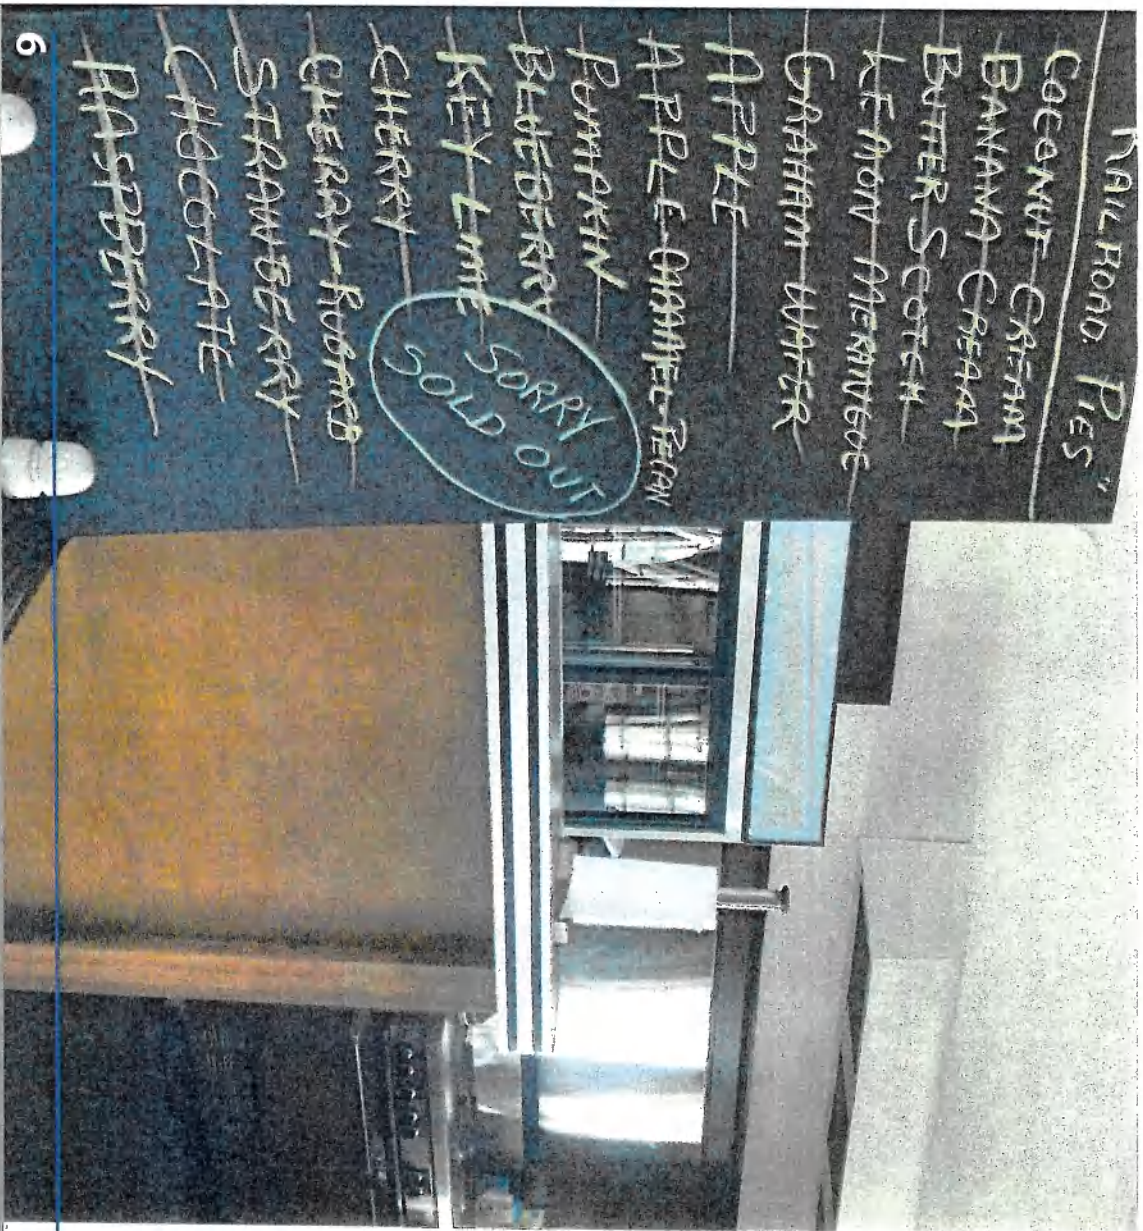 RAILROAD PIES"
COCONUT CREAM
BANANA CREAM
BUTTER SCOTCH
LEMON MERINGUE
GRAHAM WAFER
APPLE
APPLE-CARAMEL-PECAN
PUMPKIN
BLUEBERRY
KEY LIME
CHERRY
CHERRY-RUBARB
STRAWBERRY
CHOCOLATE
RASPBERRY
SORRY
SOLD OUT
6